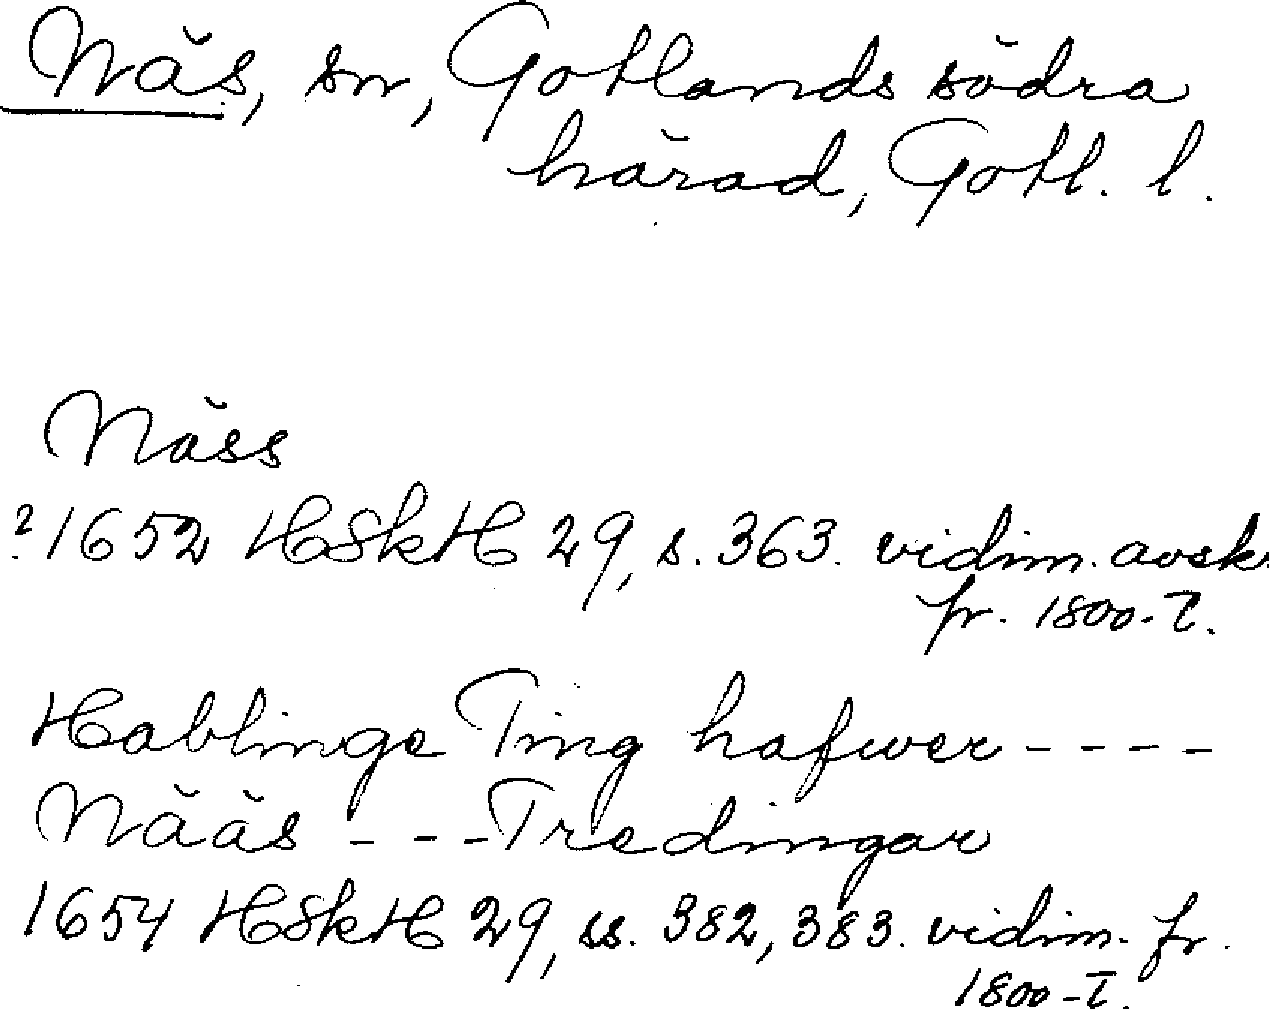 Näs, sn, Gotlands södra
härad, Gotl. l.
Näss
?1652 HSkH 29, s. 363. vidim. avsk.
fr. 1800-t.
Hablinge Ting hafwer ----
Nääs --- Tredingar
1654 HSkH 29, ss. 382, 383. vidim. fr.
1800-t.